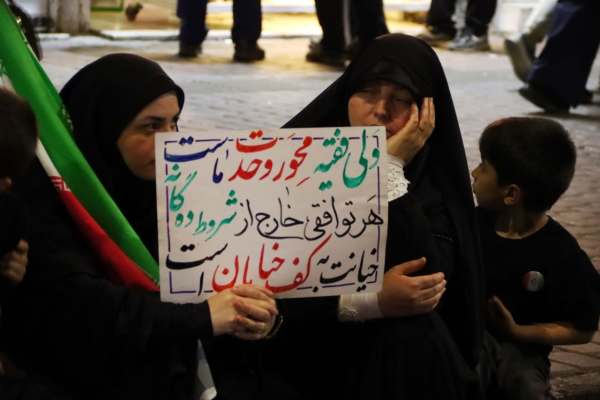 ولی فقیه محور وحدت ماست
هر توافقی خارج از شروط ده گانه
خیانت به کف خیابان است